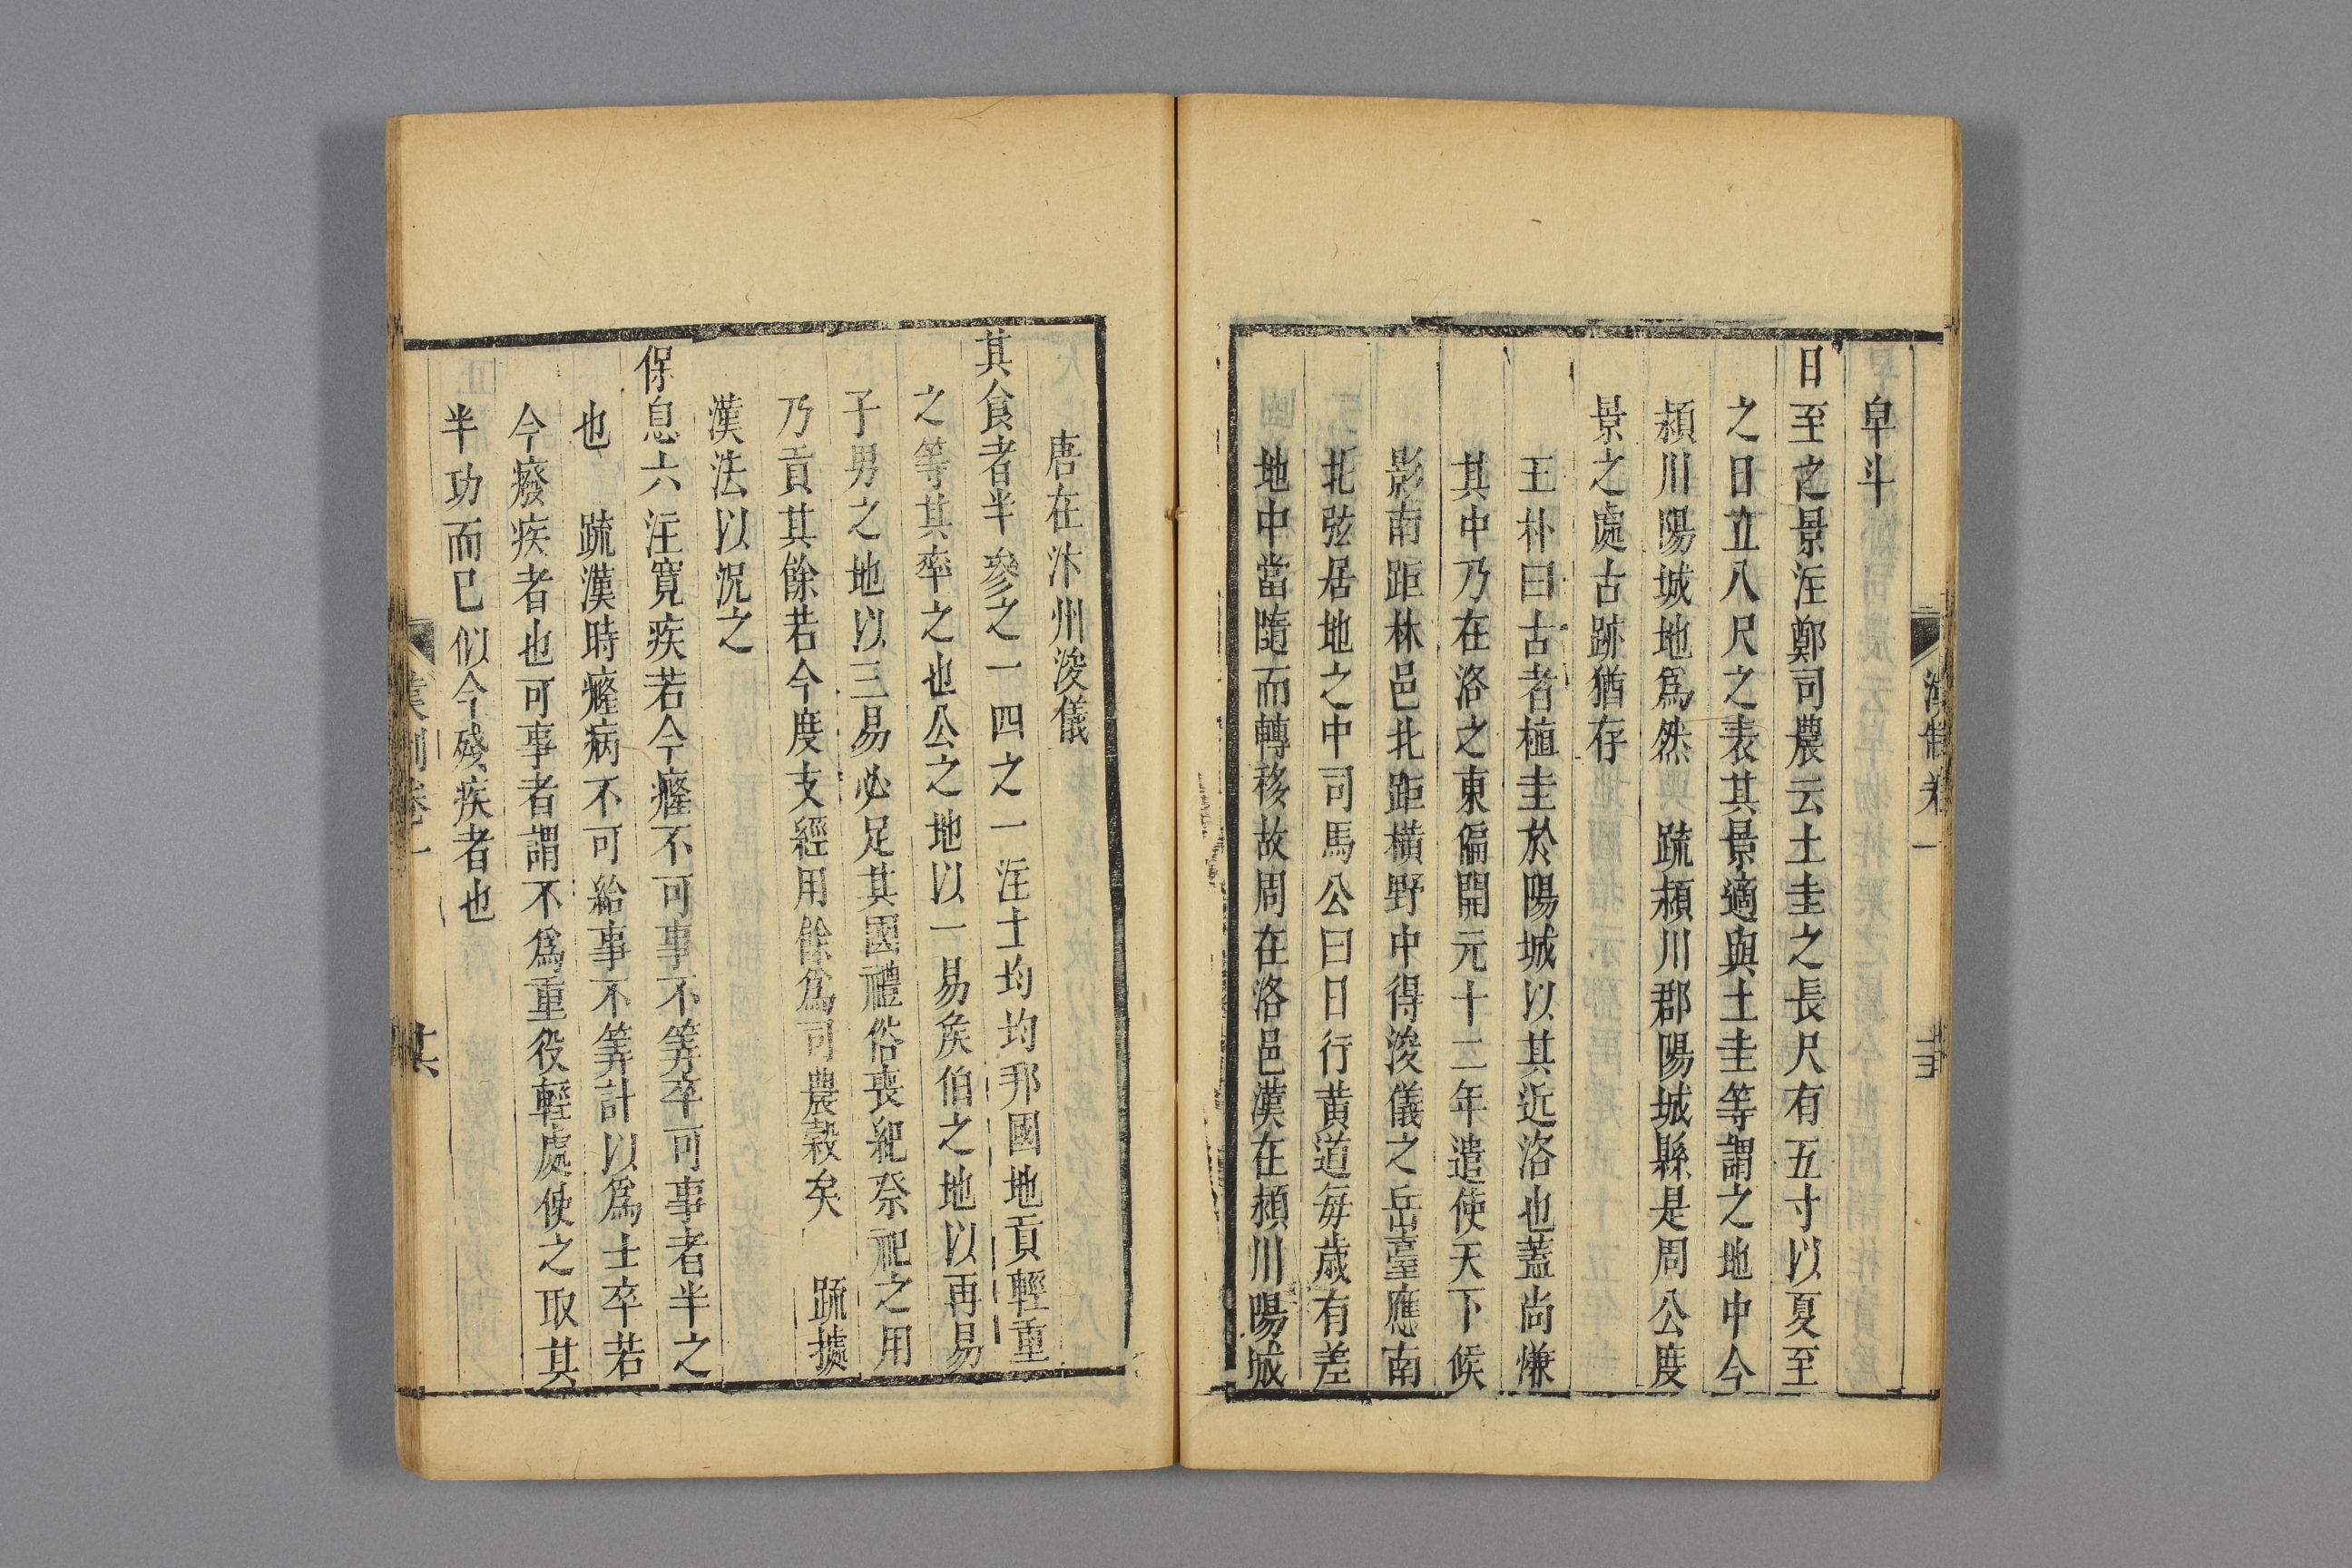 漢制卷一
皁斗
日至之景注鄭司農云土圭之長尺有五寸以夏至
之日立八尺之表其景適與土圭等謂之地中今
潁川陽城地爲然 疏潁川郡陽城縣是周公度
景之處古跡猶存
王朴曰古者植圭於陽城以其近洛也蓋尚慊
其中乃在洛之東偏開元十二年遣使天下候
影南距林邑北距橫野中得浚儀之岳臺應南
北弦居地之中司馬公曰日行黃道每歲有差
地中當隨而轉移故周在洛邑漢在潁川陽城
唐在汴州浚儀
其食者半參之一四之一注土均均邦國地貢輕重
之等其率之也公之地以一易矦伯之地以再易
子男之地以三易必足其國禮俗喪紀祭祀之用
乃貢其餘若今度支經用餘爲司農穀矣 疏據
漢法以況之
保息六注寬疾若今癃不可事不筭卒可事者半之
也 疏漢時癃病不可給事不筭計以爲士卒若
今癈疾者也可事者謂不爲重役輕處使之取其
半功而已似今殘疾者也
漢制卷一